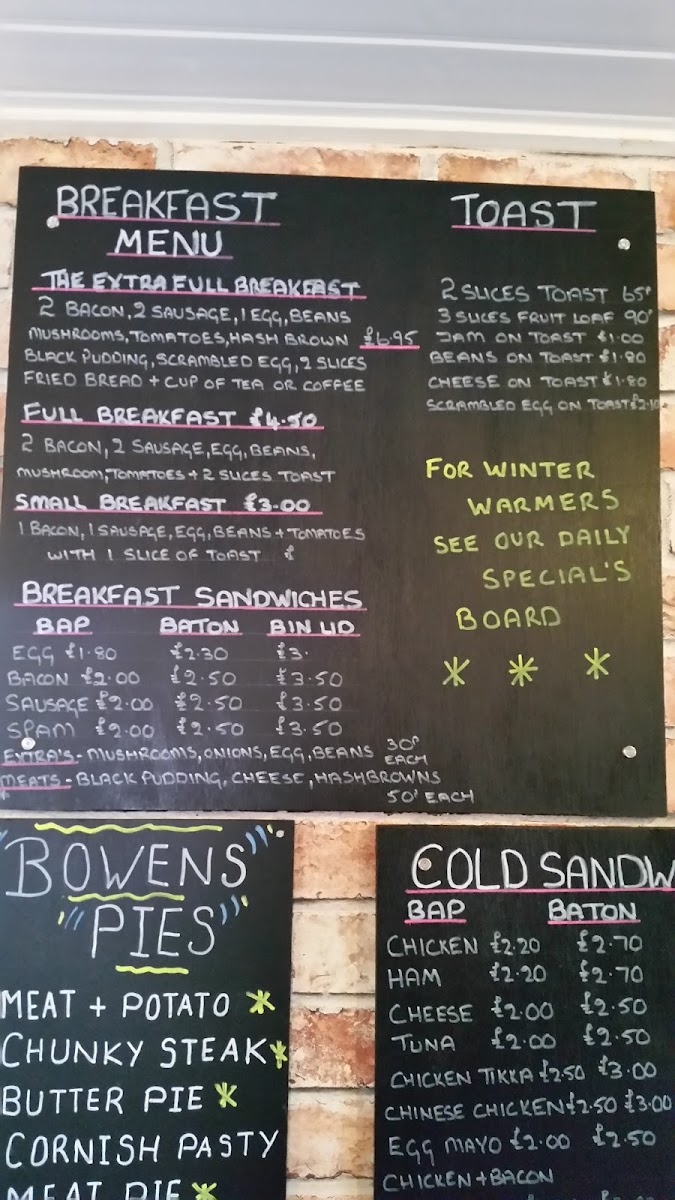 BREAKFAST
MENU
THE EXTRA FULL BREAKFAST
2 BACON, 2 SAUSAGE, 1 EGG, BEANS
MUSHROOMS, TOMATOES, HASH BROWN £6.95
BLACK PUDDING, SCRAMBLED EGG, 2 SLICES
FRIED BREAD + CUP OF TEA OR COFFEE
FULL BREAKFAST £4.50
2 BACON, 2 SAUSAGE, EGG, BEANS,
MUSHROOM, TOMATOES + 2 SLICES TOAST
SMALL BREAKFAST £3.00
1 BACON, 1 SAUSAGE, EGG, BEANS + TOMATOES
WITH 1 SLICE OF TOAST £
BREAKFAST SANDWICHES
BAP BATON BIN LID
EGG £1.80 £2.30 £3.
BACON £2.00 £2.50 £3.50
SAUSAGE £2.00 £2.50 £3.50
SPAM £2.00 £2.50 £3.50
EXTRA'S - MUSHROOMS, ONIONS, EGG, BEANS 30P EACH
MEATS - BLACK PUDDING, CHEESE, HASHBROWNS
50P EACH
TOAST
2 SLICES TOAST 65P
3 SLICES FRUIT LOAF 90P
JAM ON TOAST £1.00
BEANS ON TOAST £1.80
CHEESE ON TOAST £1.80
SCRAMBLED EGG ON TOAST £2.10
FOR WINTER
WARMERS
SEE OUR DAILY
SPECIAL'S
BOARD
"BOWENS"
"PIES"
MEAT + POTATO
CHUNKY STEAK
BUTTER PIE
CORNISH PASTY
MEAT PIE
COLD SANDW
BAP BATON
CHICKEN £2.20 £2.70
HAM £2.20 £2.70
CHEESE £2.00 £2.50
TUNA £2.00 £2.50
CHICKEN TIKKA £2.50 £3.00
CHINESE CHICKEN £2.50 £3.00
EGG MAYO £2.00 £2.50
CHICKEN + BACON